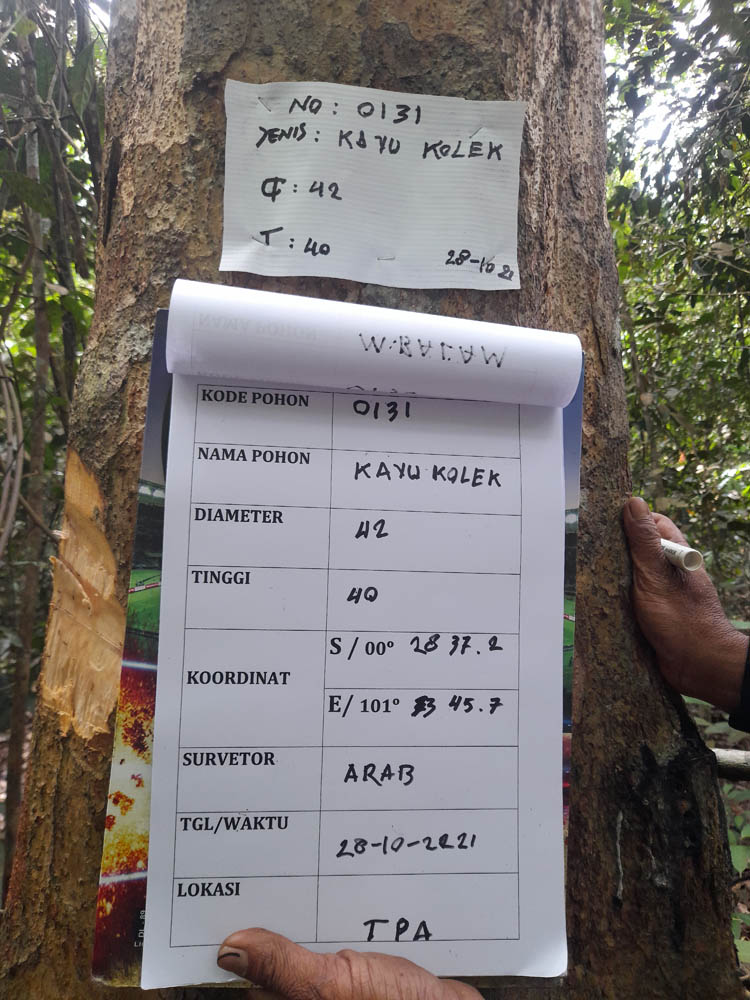 NO: 0131
JENIS: KAYU KOLEK
₵: 42
T: 40
28-10 21
NAMA POHON
W.BALAM
KODE POHON 0131
NAMA POHON KAYU KOLEK
DIAMETER 42
TINGGI 40
KOORDINAT S / 00° 28 37.2
E/ 101° 33 45.7
SURVETOR ARAB
TGL/WAKTU 28-10-2021
LOKASI TPA